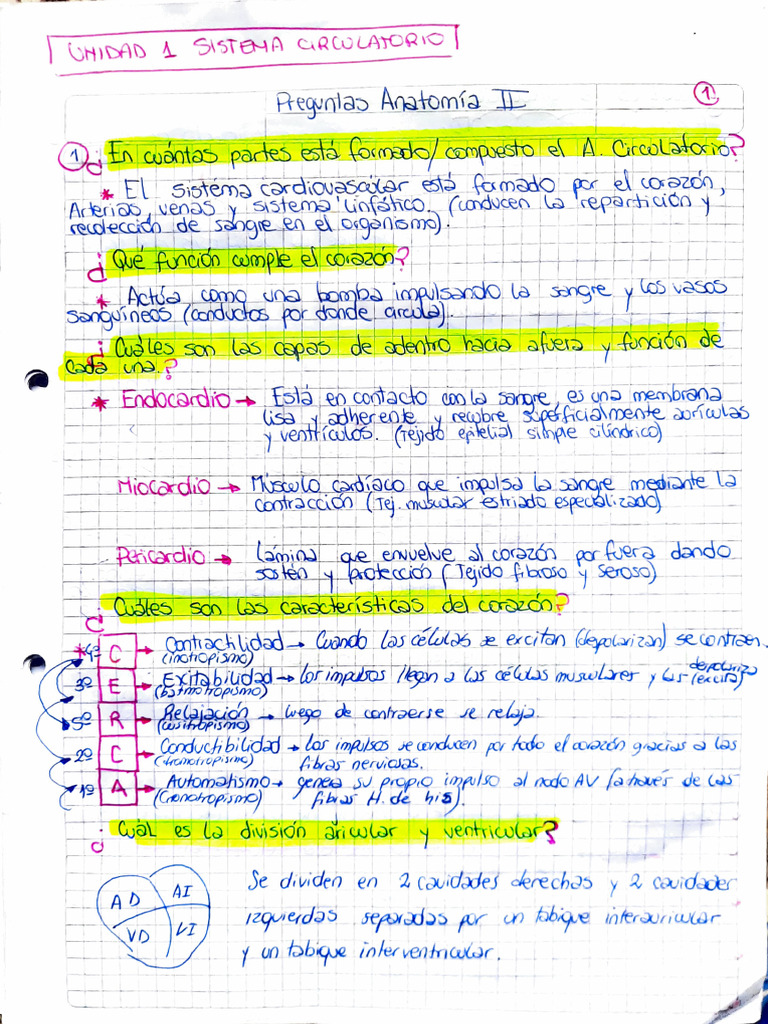 UNIDAD 1 SISTEMA CIRCULATORIO
Preguntas Anatomía II
1.
1 ¿En cuántas partes está formado/compuesto el A. Circulatorio?
* El sistema cardiovascular está formado por el corazón,
Arterias, venas y sistema linfático. (conducen la repartición y
recolección de sangre en el organismo).
¿Qué función cumple el corazón?
* Actúa como una bomba impulsando la sangre y los vasos
sanguíneos (conductos por donde circula).
¿Cuáles son las capas de adentro hacia afuera y función de
cada una.?
* Endocardio → Está en contacto con la sangre, es una membrana
lisa y adherente y recubre superficialmente aurículas
y ventrículos. (Tejido epitelial simple cilíndrico)
Miocardio → Músculo cardíaco que impulsa la sangre mediante la
contracción (Tej. muscular estriado especializado)
Pericardio → Lámina que envuelve al corazón por fuera dando
sostén y protección (Tejido fibroso y seroso)
¿Cuáles son las características del corazón?
*4º C → Contractilidad → Cuando las células se excitan (depolarizan) se contraen.
(inotropismo)
3º E → Exitabilidad → los impulsos llegan a las células musculares y las depolariza (excita)
(batmotropismo)
5º R → Relajación → luego de contraerse se relaja.
(lusitropismo)
2º C → Conductibilidad → los impulsos se conducen por todo el corazón gracias a las
(dromotropismo) fibras nerviosas.
1º A → Automatismo → genera su propio impulso al nodo AV (a través de las
(Cronotropismo) fibras H. de his).
¿Cuál es la división auricular y ventricular?
AD AI
VD VI
Se dividen en 2 cavidades derechas y 2 cavidades
izquierdas separadas por un tabique interauricular
y un tabique interventricular.